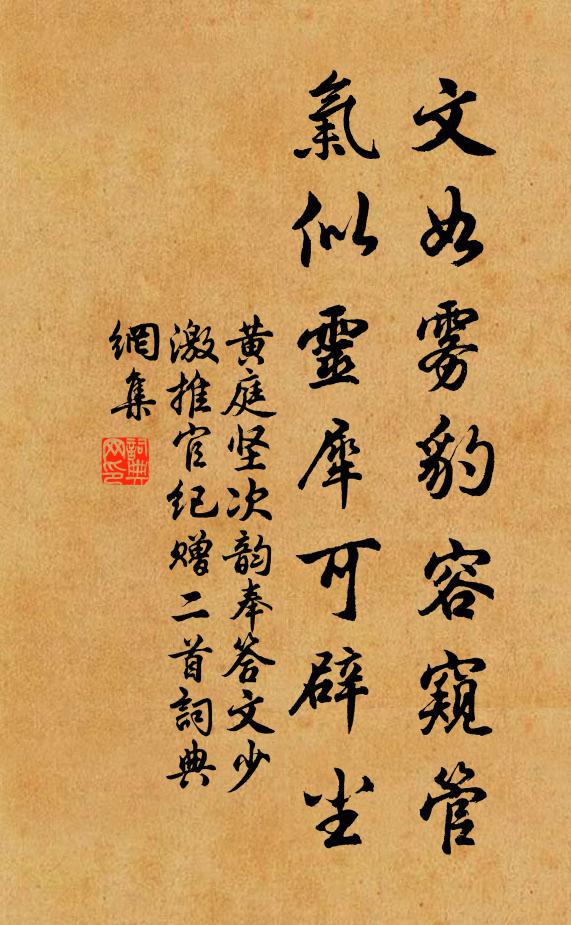 文如雾豹容窥管
氣似靈犀可辟尘
黄庭坚次韵奉答文少
激推官纪赠二首詞典
網集
詞典
网印